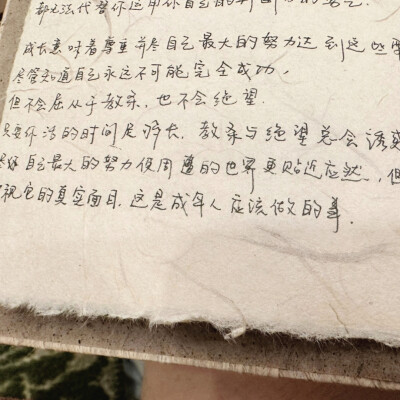 都无法代替你运用你自己的
成长意味着尊重并尽自己最大的努力达到这些
尽管知道自己永远不可能完全成功,
但不会屈从于教条,也不会绝望.
只要你活的时间足够长,教条与绝望总会诱惑
尽自己最大的努力使周遭的世界更贴近应然,但
视它的真实面目.这是成年人应该做的事.